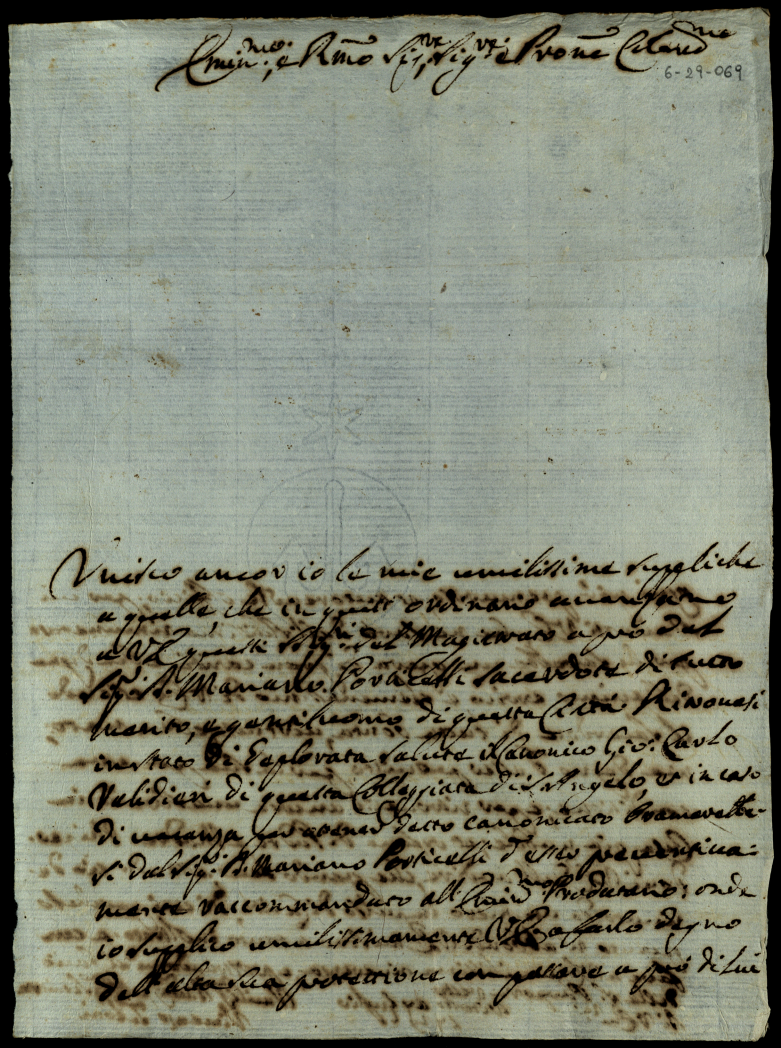 Emin.mo, e Rmo Sig.re, Sig.re e Prone Colend.mo
6-29-069
Unisco ancor io le mie umilissime suppliche
a quelle, che in questo ordinario avanzano
a VE questi Sig.ri del Magistrato a prò del
Sig.r D. Mariano Porticelli sacerdote di tutto
merito, e gentilhuomo di questa Città. Ritrovasi
in stato di deplorata salute il Canonico Gio: Carlo
Validieri di questa Collegiata di S. Angelo, et in caso
di vacanza per avened detto canonicato bramerebbe-
si dal Sig.r D. Mariano Porticelli d'esser preventiva-
mente raccommandato all' Emin.mo Prodatario; onde
io supplico umilissimamente VE a farlo degno
dell' alta sua protettione con passare a prò di lui